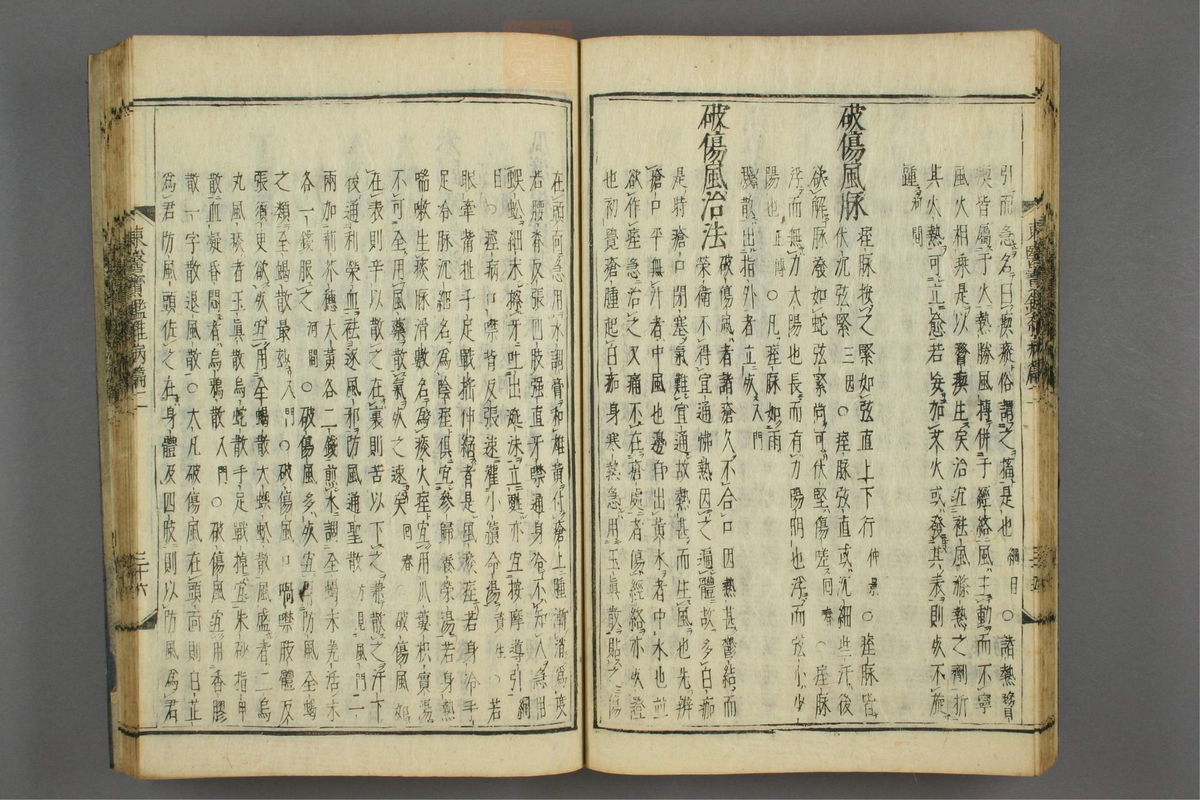 引而急名曰瘈瘲俗謂之搐是也綱目○諸熱瞀
瘈皆屬于火熱勝風搏併于經絡風主動而不寧
風火相乘是以瞀瘈生矣治宜祛風滌熱之劑折
其火熱可立愈若妄加艾火或發其表則死不旋
踵河間
破傷風脉
痓脉按之緊如弦直上下行仲景○痓脉皆
伏沉弦緊三因○痓脉弦直或沉細些汗後
欲解脉發如蛇弦緊尚可伏堅傷陟回春○痓脉
浮而無力太陽也長而有力陽明也浮而弦小少
陽也正傳○凡痓脉如雨
濺散出指外者立死入門
破傷風治法
破傷風者諸瘡久不合口因熱甚鬱結而
榮衛不得宜通怫熱因之遍體故多白痂
是時瘡口閉塞氣難宜通故熱甚而生風也先辨
瘡口平無汁者中風也邊自出黃水者中水也並
欲作痓急治之又痛不在瘡處者傷經絡亦死證
也初覺瘡腫起白痂身寒熱急用玉眞散貼之傷
在頭面急用水調膏和雄黃付瘡上腫漸消爲度
若腰脊反張四肢强直牙噤通身冷不知人急用
蜈蚣細末擦牙吐出涎沫立醒亦宜按摩導引綱
目○痓病口噤背反張速灌小續命湯資生○若
眼牽嘴扯手足戰搖伸縮者是風痰痓若身冷手
足冷脉沉細名爲陰痓俱宜參歸養榮湯若身熱
喘嗽生痰脉滑數名爲痰火痓宜用瓜蔞枳實湯
不可全用風藥散氣死之速矣回春○破傷風如
在表則辛以散之在裏則苦以下之兼散之汗下
後通利榮血祛逐風邪防風通聖散方見風門二
兩加荊芥穗大黃各二錢煎水調全蝎末羌活末
各一錢服之河間○破傷風多死宜防風全蝎
之類全蝎散最妙入門○破傷風口噤肢體反
張須臾欲死宜用全蝎散大蜈蚣散風盛者二烏
丸風痰者玉眞散烏蛇散手足戰掉宜朱砂指甲
散血凝昏悶者烏鴉散入門○破傷風宜用香膠
散一字散退風散○大凡破傷風在頭面則白芷
爲君防風頭佐之在身體及四肢則以防風爲君
東醫寶鑑雜病篇二
三十六